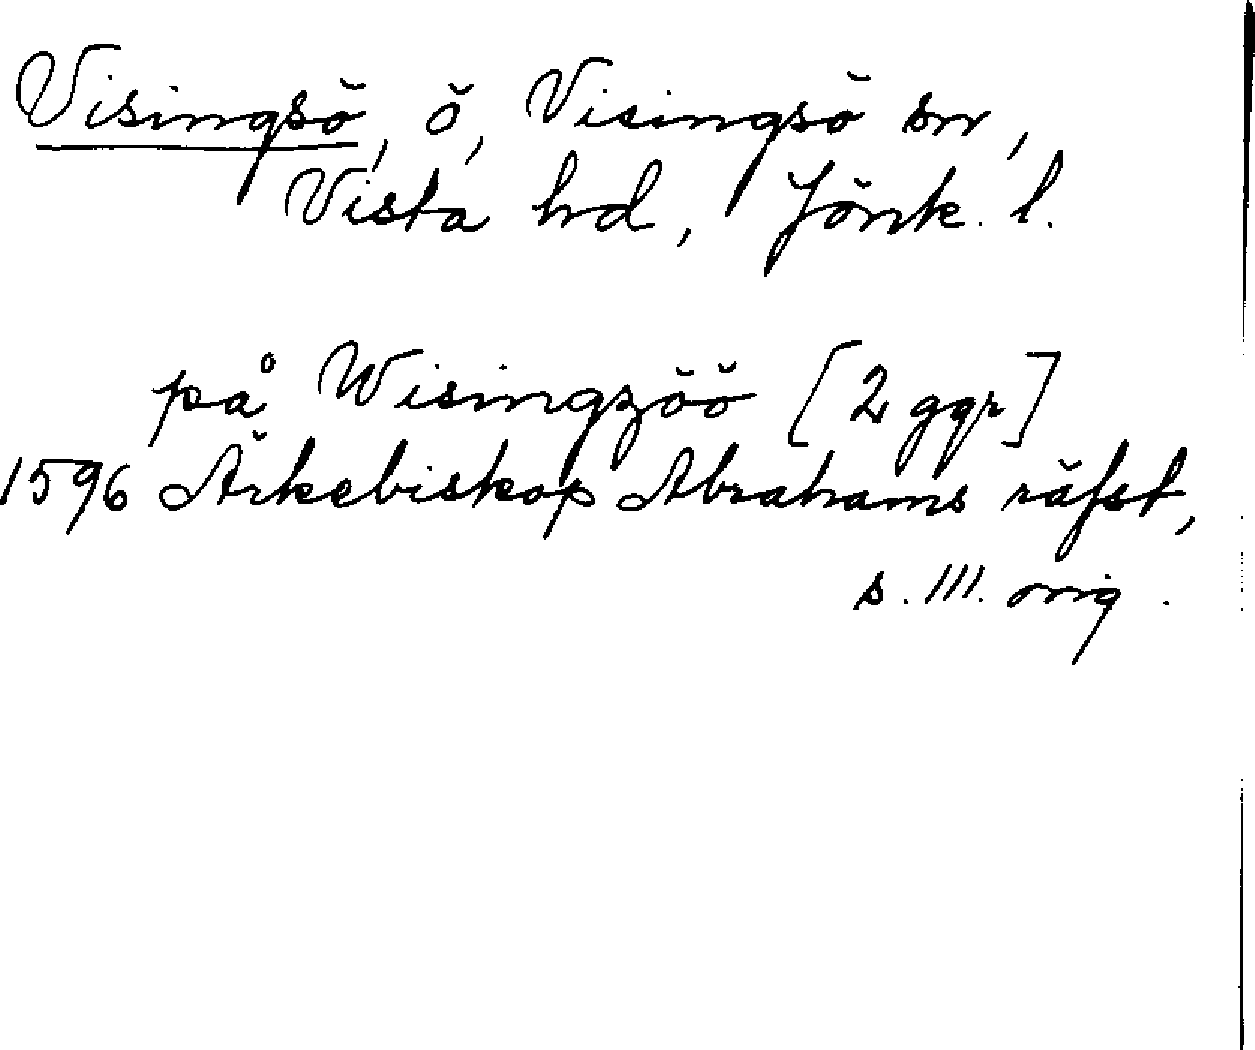 Visingsö, ö, Visingsö sn,
Vista hd, Jönk. l.
på Wisingzöö [2 ggr]
1596 Ärkebiskop Abrahams räfst,
s. 111. orig.